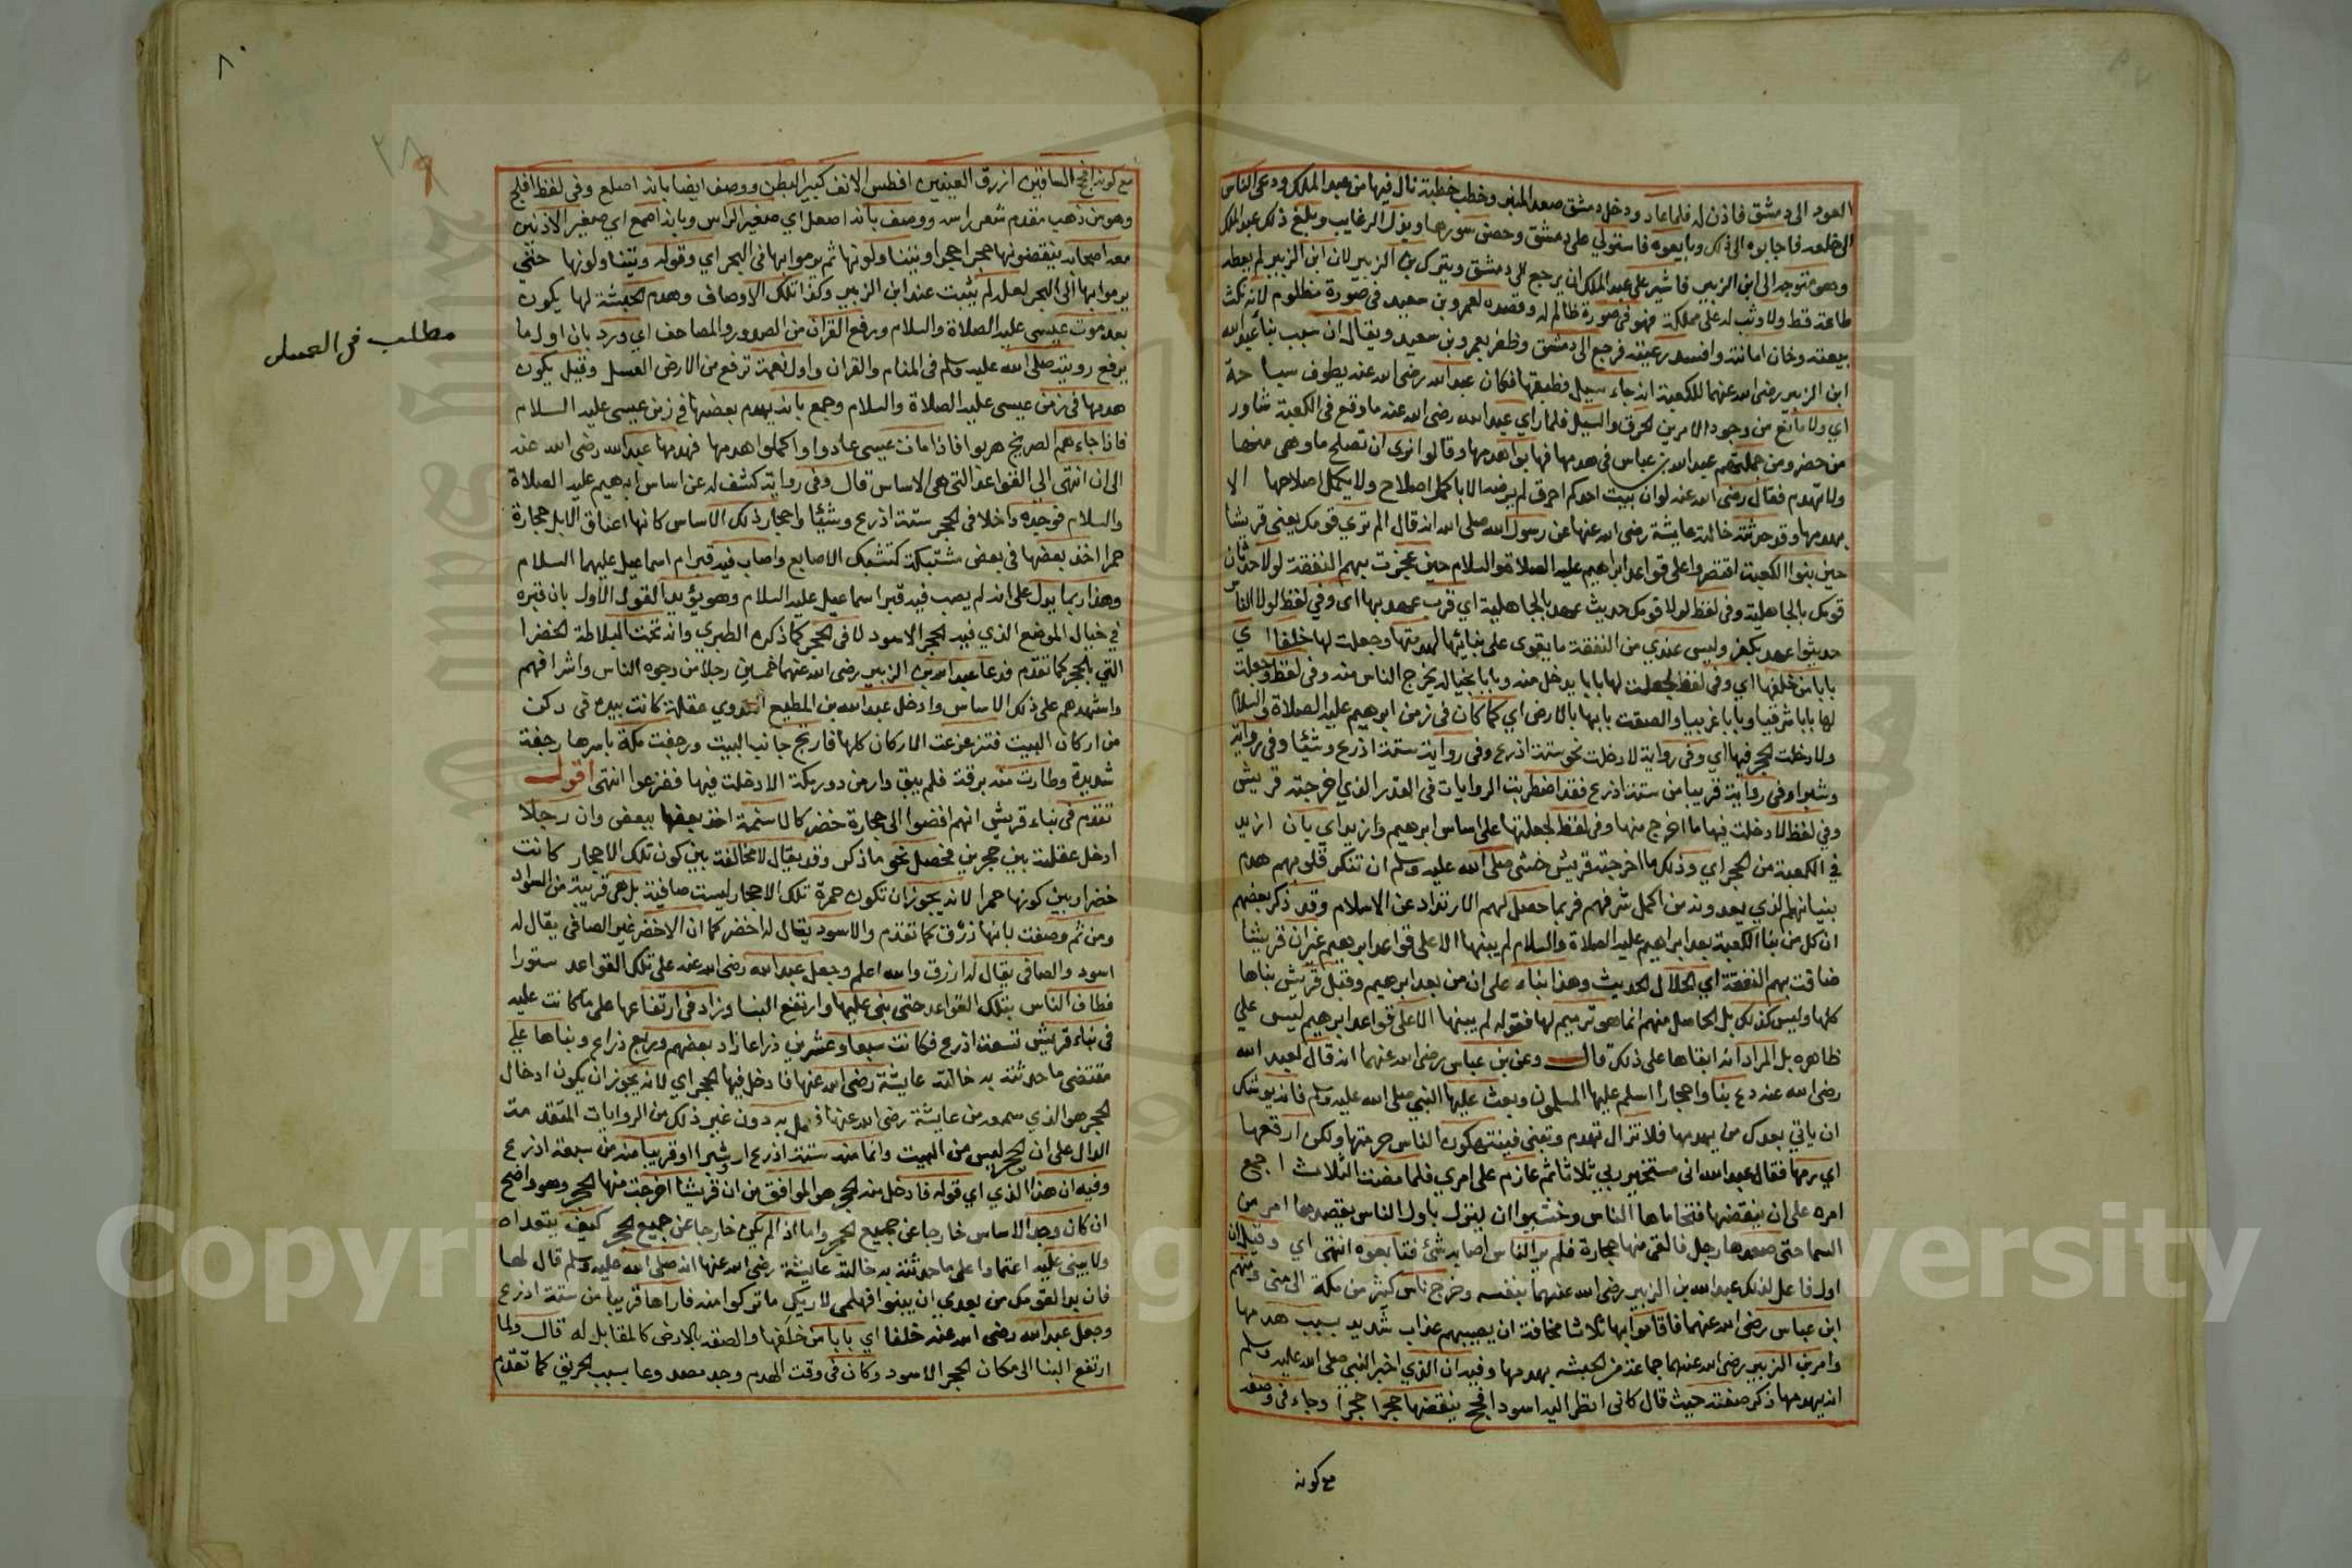 العود الى دمشق فاذن له فلما عاد ودخل دمشق صعد المنبر وخطب خطبة نال فيها من عبد الملك ودعى الناس
الى خلعه فاجابوه الى ذلك وبايعوه فاستولي على دمشق وحصن سورها وبذل الرغايب وبلغ ذلك عبد الملك
وهو متوجه الى ابن الزبير فاشير على عبد الملك ان يرجع الى دمشق ويترك بن الزبير لان ابن الزبير لم يعطه
طاعة قط ولا وثب له على مملكة فهو في صورة ظالم له وقصده لعمرو بن سعيد في صورة مظلوم لانه نكث
بيعته وخان امانته وافسد رعيته فرجع الى دمشق وظفر بعمرو بن سعيد ويقال ان سبب بناء عبد الله
ابن الزبير رضى الله عنهما للكعبة انه جاء سيل فطبقها فكان عبد الله رضى الله عنه يطوف سباحة
اي ولا مانع من وجود الامرين الحرق والسيل فلما راي عبد الله رضى الله عنه ما وقع في الكعبة شاور
من حضر ومن جملتهم عبد الله بن عباس في هدمها فهابوا هدمها وقالوا نرى ان تصلح ما وهى منها
ولا تهدم فقال رضى الله عنه لو ان بيت احدكم احرق لم يرضه الا باكمل اصلاح ولا يكمل اصلاحها الا
بهدمها وقد حدثته خالته عايشة رضى الله عنها عن رسول الله صلى الله انه قال الم تري قومك يعني قريشا
حين بنوا الكعبة اقتصروا على قواعد ابراهيم عليه الصلاة والسلام حين عجزت بهم النفقة لولا حدثان
قومك بالجاهلية وفى لفظ لولا قومك حديث عهد بالجاهلية اي قرب عهد بها اى وفي لفظ لولا الناس
حديثوا عهد بكفر وليس عندي من النفقة ما يقوى على بنائها لهدمتها وجعلت لها خلفا اي
بابا من خلفها اي وفى لفظ لجعلت لها بابا يدخل منه وبابا بحياله يخرج الناس منه وفى لفظ وجعلت
لها بابا شرقيا وبابا غربيا والصقت بابها بالارض اي كما كان في زمن ابرهيم عليه الصلاة والسلام
ولادخلت الحجر فيها اي وفى رواية لادخلت نحو ستة اذرع وفى رواية ستة اذرع وشيئا وفى رواية
وشبرا وفى رواية قريبا من ستة اذرع فقد اضطربت الروايات في القدر الذي اخرجته قريش
وفي لفظ لادخلت فيها ما اخرج منها وفى لفظ لجعلتها على اساس ابرهيم وازيد اي بان ازيد
في الكعبة من الحجر اي وذلك ما اخرجته قريش خشى صلى الله عليه وسلم ان تنكر قلوبهم هدم
بنيانهم الذي يعدونه من اكمل شرفهم فربما حصل لهم الارتداد عن الاسلام وقد ذكر بعضهم
ان كل من بنا الكعبة بعد ابراهيم عليه الصلاة والسلام لم يبنها الا على قواعد ابرهيم غير ان قريشا
ضاقت بهم النفقة اي الحلال الحديث وهذا بناء على ان من بعد ابرهيم وقبل قريش بناها
كلها وليس كذلك بل الحاصل منهم انما هو ترميم لها فقوله لم يبنها الا على قواعد ابرهيم ليس على
ظاهره بل المراد انه ابقاها على ذلك قال وعن بن عباس رضى الله عنهما انه قال لعبد الله
رضى الله عنه دع بناء واحجارا اسلم عليها المسلمون وبعث عليها النبي صلى الله عليه وسلم فانه يوشك
ان ياتي بعدك من يهدمها فلا تزال تهدم وتبنى فينتهكون الناس حرمتها ولكن ارقعها
اي رمها فقال عبد الله انى مستخير ربي ثلاثا ثم عازم على امري فلما مضت الثلاث اجمع
امره على ان ينقضها فتحاماها الناس وخشيوا ان ينزل باول الناس يقصدها امر من
السما حتى صعدها رجل فالقى منها حجارة فلم ير الناس اصابه شئ فتابعوه انتهى اي وقيل ان
اول فاعل لذلك عبد الله بن الزبير رضى الله عنهما بنفسه وخرج ناس كثير من مكة الى منى ومنهم
ابن عباس رضى الله عنهما فاقاموا بها ثلاثا مخافة ان يصيبهم عذاب شديد بسبب هدمها
وامر بن الزبير رضى الله عنهما جماعة من الحبشه بهدمها وفيه ان الذي اخبر النبي صلى الله عليه وسلم
انه يهدمها ذكر صفته حيث قال كانى انظر اليه اسود افحج ينقضها حجرا حجرا وجاء في وصفه
مع كونه
٨٠
مع كونه افحج الساقين ازرق العينين افطس الانف كبير البطن ووصف ايضا بانه اصلع وفى لفظ افلج
وهو من ذهب مقدم شعر راسه ووصف بانه اصعل اي صغير الراس وبانه اصمع اي صغير الاذنين
معه اصحابه ينقضونها حجرا حجرا ويتناولونها ثم يرموا بها فى البحر اي وقوله ويتناولونها حتى
يرموا بها الى البحر لعله لم يثبت عند ابن الزبير وكذا تلك الاوصاف وهدم الحبشة لها يكون
بعد موت عيسى عليه الصلاة والسلام ورفع القران من الصدور والمصاحف اي ورد بان اول ما
يرفع رويته صلى الله عليه وسلم فى المنام والقران واول نعمة ترفع من الارض العسل وقيل يكون
مطلب فى العسل
هدمها فى زمن عيسى عليه الصلاة والسلام وجمع بانه يهدم بعضها فى زمن عيسى عليه السلام
فاذا جاءهم الصريخ هربوا فاذا مات عيسى عادوا واكملوا هدمها فهدمها عبد الله رضى الله عنه
الى ان انتهى الى القواعد التى هى الاساس قال وفى رواية كشف له عن اساس ابرهيم عليه الصلاة
والسلام فوجده داخلا فى الحجر ستة اذرع وشيئا واحجار ذلك الاساس كانها اعناق الابل حجارة
حمرا اخذ بعضها فى بعض مشتبكة كتشبك الاصابع واصاب فيه قبر ام اسماعيل عليهما السلام
وهذا ربما يدل على انه لم يصب فيه قبر اسماعيل عليه السلام وهو يؤيد القول الاول بان قبره
في حيال الموضع الذي فيه الحجر الاسود لا فى الحجر كما ذكره الطبري وانه تحت البلاطة الخضرا
التي بالحجر كما تقدم فدعا عبد الله بن الزبير رضى الله عنهما خمسين رجلا من وجوه الناس واشرافهم
واشهدهم على ذلك الاساس وادخل عبد الله بن المطيع العدوي عتلة كانت بيده فى ركن
من اركان البيت فتزعزعت الاركان كلها فارتج جانب البيت ورجفت مكة باسرها رجفة
شديدة وطارت منه برقة فلم يبق دار من دور مكة الا دخلت فيها ففزعوا انتهى اقول
تقدم فى بناء قريش انهم افضوا الى حجارة خضر كالاسنمة اخذ بعضها ببعض وان رجلا
ادخل عتلته بين حجرين فحصل نحو ما ذكر وقد يقال لا مخالفة بين كون تلك الاحجار كانت
خضرا وبين كونها حمرا لانه يجوز ان تكون حمرة تلك الاحجار ليست صافية بل هى قريبة من السواد
ومن ثم وصفت بانها زرق كما تقدم والاسود يقال له اخضر كما ان الاخضر غير الصافى يقال له
اسود والصافى يقال له ازرق والله اعلم وجعل عبد الله رضى الله عنه على تلك القواعد ستورا
فطاف الناس بتلك القواعد حتى بنى عليها وارتفع البنا وزاد فى ارتفاعها على ما كانت عليه
فى بناء قريش تسعة اذرع فكانت سبعا وعشرين ذراعا زاد بعضهم وربع ذراع وبناها على
مقتضى ما حدثته به خالته عايشة رضى الله عنها فادخل فيها الحجر اي لانه يجوز ان يكون ادخال
الحجر هو الذي سمعه من عايشة رضى الله عنها به دون غير ذلك من الروايات المتقدمة
الدال على ان الحجر ليس من البيت وانما منه ستة اذرع او شبرا او قريبا منه من سبعة اذرع
وفيه ان هذا الذي اي قوله فادخل منه الحجر هو الموافق من ان قريشا اخرجت منها الحجر وهو واضح
ان كان وجد الاساس خارجا عن جميع الحجر واما اذا لم يكن خارجا عن جميع الحجر كيف يتعداه
ولا يبنى عليه اعتمادا على ما حدثته به خالته عايشة رضى الله عنها انه صلى الله عليه وسلم قال لها
فان بدا لقومك من بعدي ان يبنوا فهلمى لاريكى ما تركوا منه فاراها قريبا من ستة اذرع
وجعل عبد الله رضى الله عنه خلفا اي بابا من خلفها والصقه بالارض كالمقابل له قال ولما
ارتفع البنا الى مكان الحجر الاسود وكان فى وقت الهدم وجد مصدوعا بسبب الحريق كما تقدم